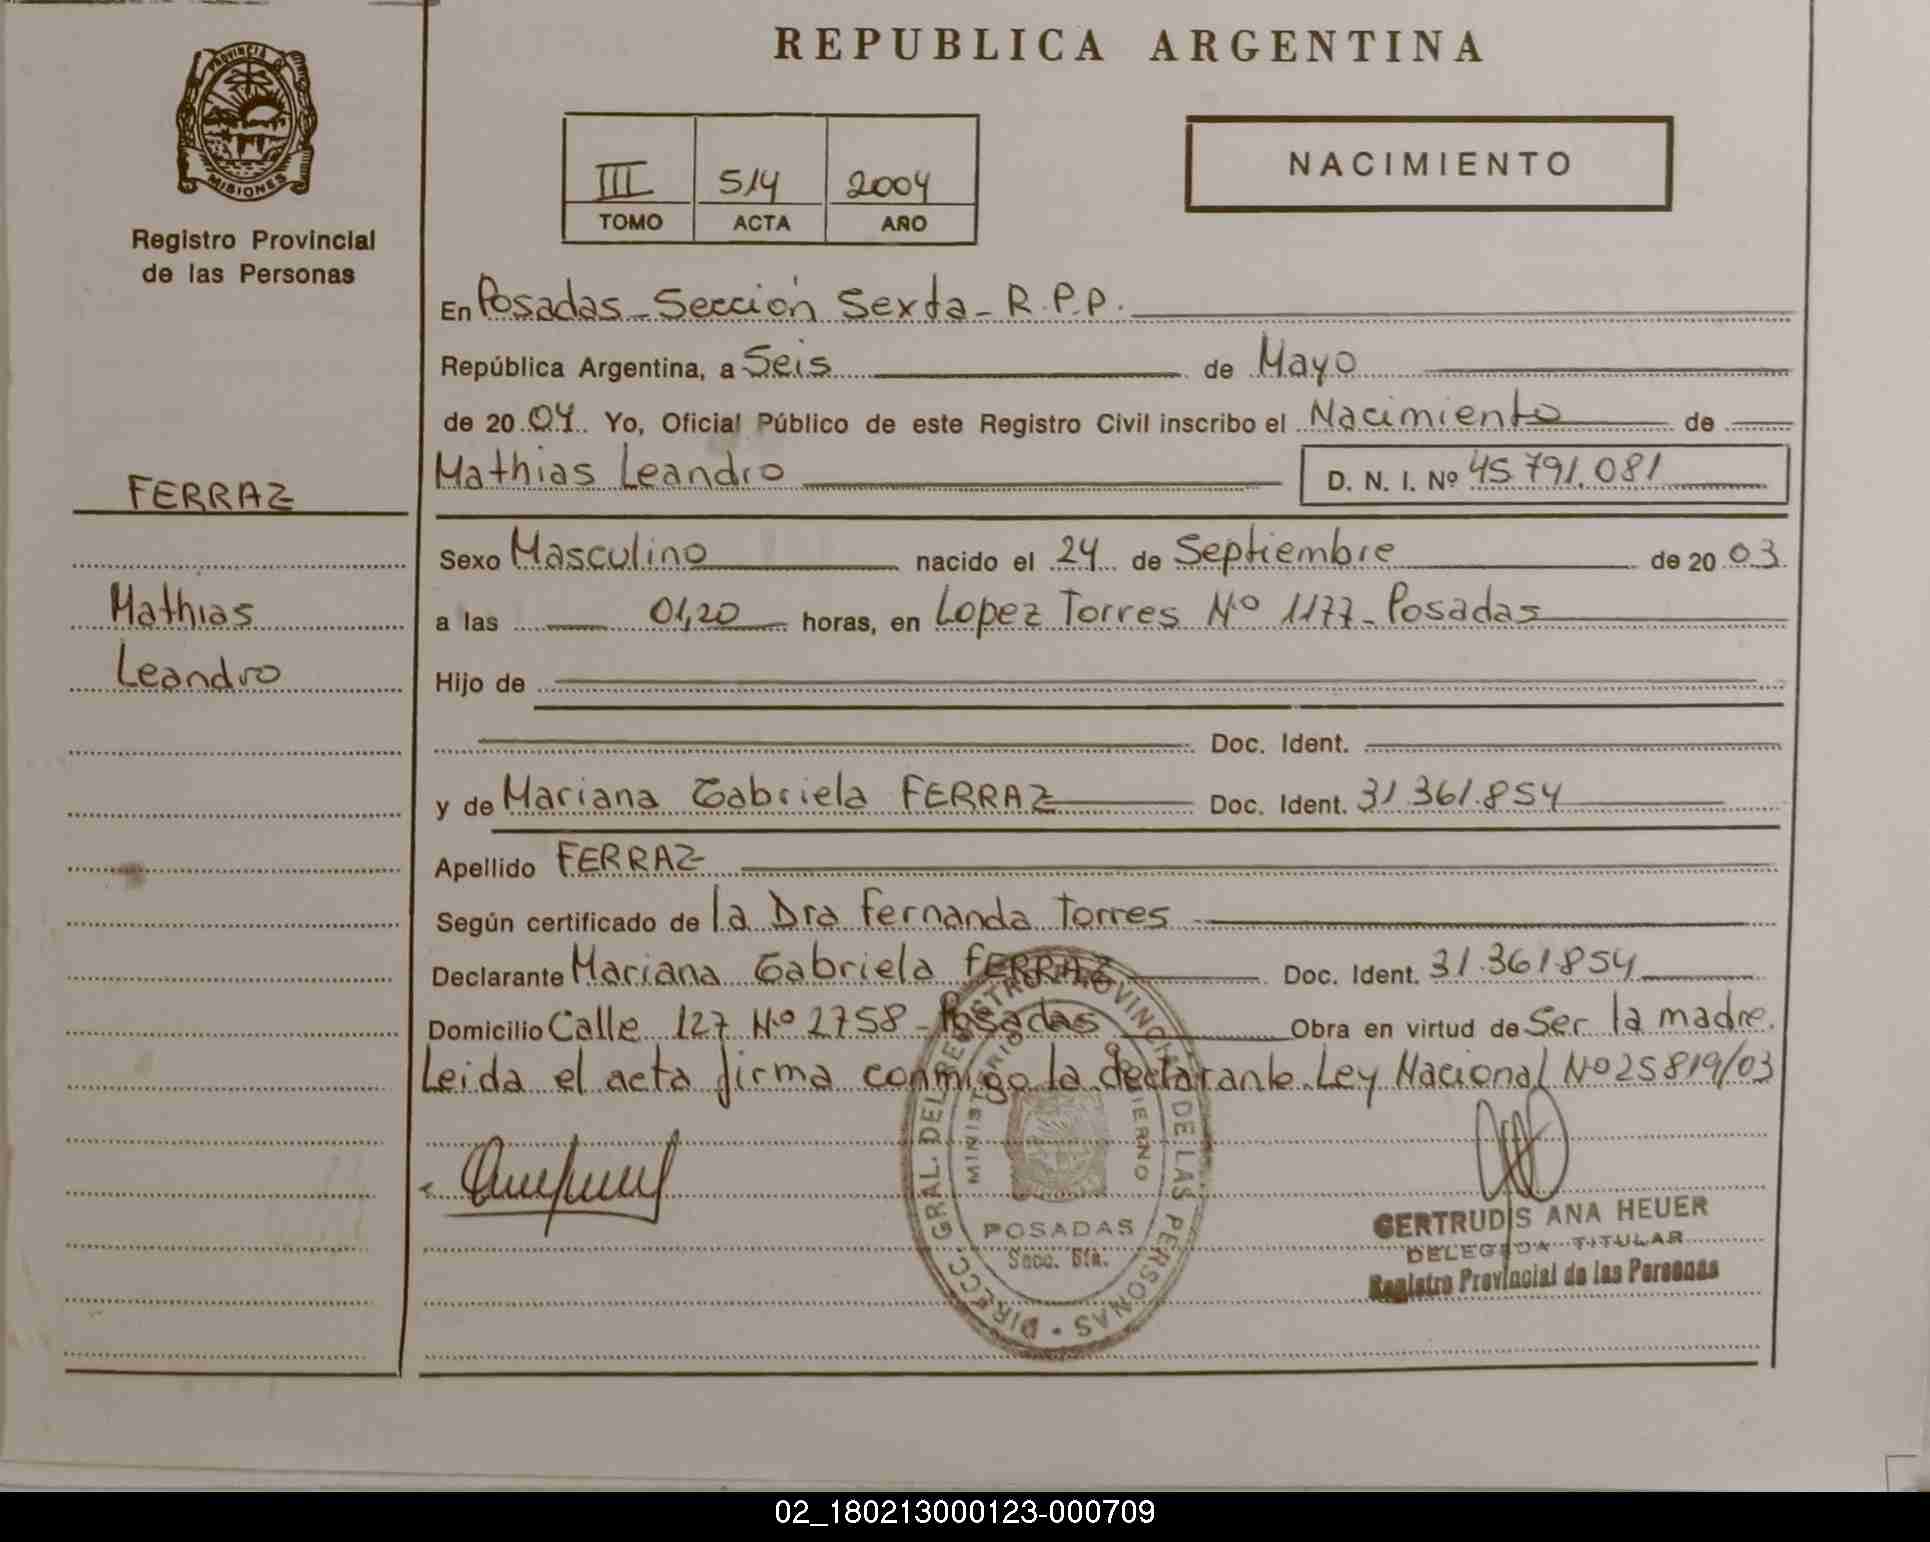 REPUBLICA ARGENTINA
PROVINCIA DE
MISIONES
Registro Provincial
de las Personas
III 514 2004
TOMO ACTA AÑO
NACIMIENTO
En Posadas - Sección Sexta - R.P.P.
República Argentina, a Seis de Mayo
de 20 04 Yo, Oficial Público de este Registro Civil inscribo el Nacimiento de
Mathias Leandro D. N. I. Nº 45.791.081
FERRAZ
Mathias
Leandro
Sexo Masculino nacido el 24 de Septiembre de 20 03
a las 01,20 horas, en Lopez Torres Nº 1177 - Posadas
Hijo de
Doc. Ident.
y de Mariana Gabriela FERRAZ Doc. Ident. 31.361.854
Apellido FERRAZ
Según certificado de la Dra Fernanda Torres
Declarante Mariana Gabriela FERRAZ Doc. Ident. 31.361.854
Domicilio Calle 127 Nº 2758 - Posadas Obra en virtud de Ser la madre.
Leida el acta firma conmigo la declarante Ley Nacional Nº 25819/03
DIRECC. GRAL. DEL REGISTRO PROVINCIAL DE LAS PERSONAS
MINISTERIO GOBIERNO
POSADAS
Secc. 6ta.
GERTRUDIS ANA HEUER
DELEGADA TITULAR
Registro Provincial de las Personas
02_180213000123-000709